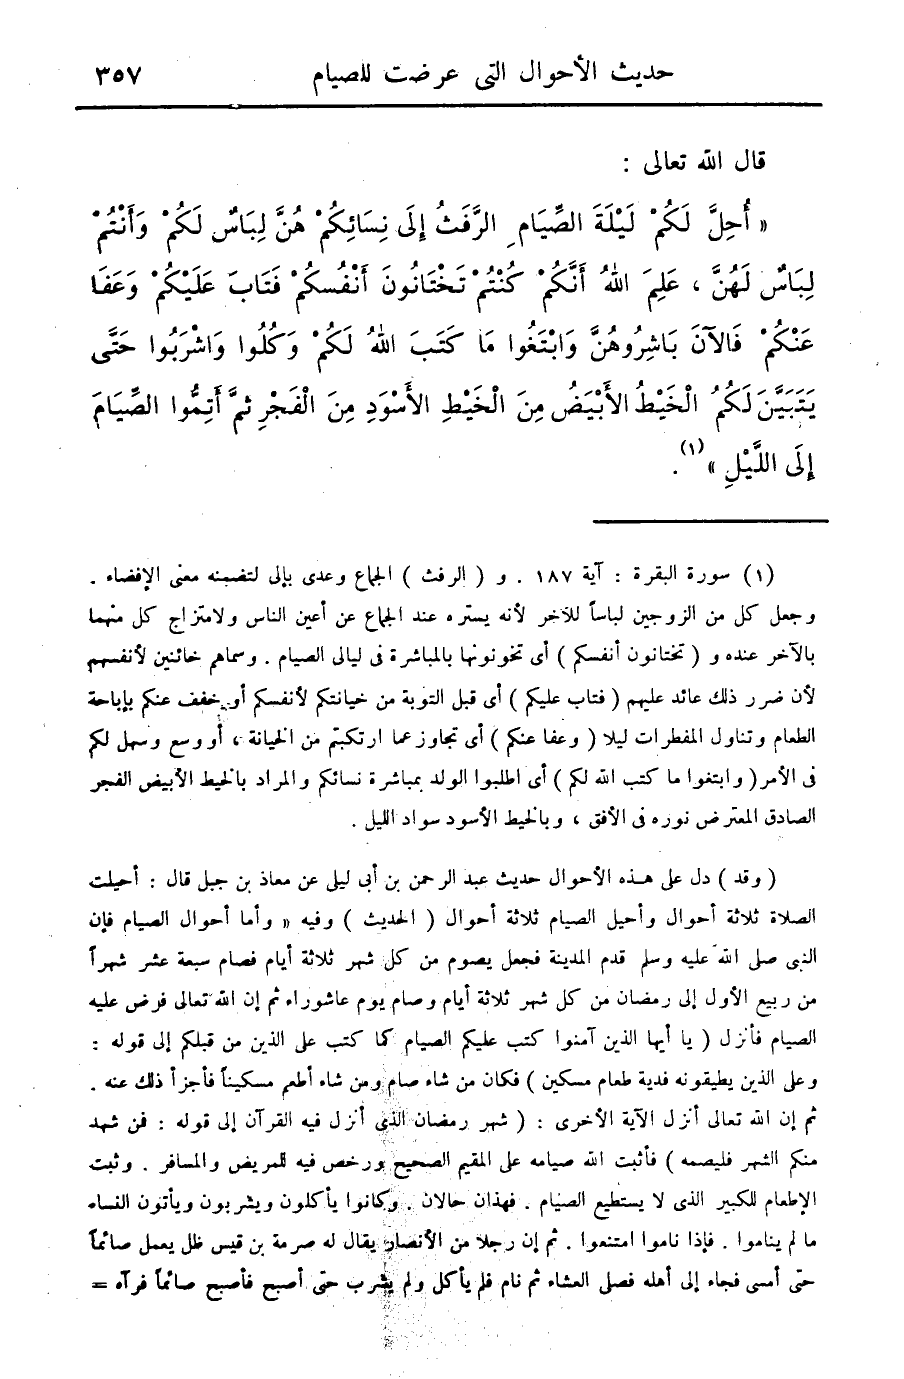 حديث الأحوال التى عرضت للصيام ٣٥٧
قال الله تعالى :
« أُحِلَّ لَكُمْ لَيْلَةَ الصِّيَامِ الرَّفَثُ إِلَى نِسَائِكُمْ هُنَّ لِبَاسٌ لَكُمْ وَأَنْتُمْ
لِبَاسٌ لَهُنَّ ، عَلِمَ اللهُ أَنَّكُمْ كُنْتُمْ تَخْتَانُونَ أَنْفُسَكُمْ فَتَابَ عَلَيْكُمْ وَعَفَا
عَنْكُمْ فَالآنَ بَاشِرُوهُنَّ وَابْتَغُوا مَا كَتَبَ اللهُ لَكُمْ وَكُلُوا وَاشْرَبُوا حَتَّى
يَتَبَيَّنَ لَكُمُ الْخَيْطُ الأَبْيَضُ مِنَ الْخَيْطِ الأَسْوَدِ مِنَ الْفَجْرِ ثُمَّ أَتِمُّوا الصِّيَامَ
إِلَى اللَّيْلِ » (١) .
(١) سورة البقرة : آية ١٨٧ . و ( الرفث ) الجماع وعدى بإلى لتضمينه معنى الإفضاء .
وجعل كل من الزوجين لباساً للآخر لأنه يستره عند الجماع عن أعين الناس ولامتزاج كل منهما
بالآخر عنده و ( تختانون أنفسكم ) أى تخونونها بالمباشرة فى ليالى الصيام . وسماهم خائنين لأنفسهم
لأن ضرر ذلك عائد عليهم ( فتاب عليكم ) أى قبل التوبة من خيانتكم لأنفسكم أو خفف عنكم بإباحة
الطعام وتناول المفطرات ليلا ( وعفا عنكم ) أى تجاوز عما ارتكبتم من الخيانة ، أو وسع وسهل لكم
فى الأمر ( وابتغوا ما كتب الله لكم ) أى اطلبوا الولد بمباشرة نسائكم والمراد بالخيط الأبيض الفجر
الصادق المعترض نوره فى الأفق ، وبالخيط الأسود سواد الليل .
( وقد ) دل على هذه الأحوال حديث عبد الرحمن بن أبى ليلى عن معاذ بن جبل قال : أحيلت
الصلاة ثلاثة أحوال وأحيل الصيام ثلاثة أحوال ( الحديث ) وفيه « وأما أحوال الصيام فإن
النبى صلى الله عليه وسلم قدم المدينة فجعل يصوم من كل شهر ثلاثة أيام فصام سبعة عشر شهراً
من ربيع الأول إلى رمضان من كل شهر ثلاثة أيام وصام يوم عاشوراء ثم إن الله تعالى فرض عليه
الصيام فأنزل ( يا أيها الذين آمنوا كتب عليكم الصيام كما كتب على الذين من قبلكم إلى قوله :
وعلى الذين يطيقونه فدية طعام مسكين ) فكان من شاء صام ومن شاء أطعم مسكيناً فأجزأ ذلك عنه .
ثم إن الله تعالى أنزل الآية الأخرى : ( شهر رمضان الذى أنزل فيه القرآن إلى قوله : فمن شهد
منكم الشهر فليصمه ) فأثبت الله صيامه على المقيم الصحيح ورخص فيه للمريض والمسافر . وثبت
الإطعام للكبير الذى لا يستطيع الصيام . فهذان حالان . وكانوا يأكلون ويشربون ويأتون النساء
ما لم يناموا . فإذا ناموا امتنعوا . ثم إن رجلا من الأنصار يقال له صرمة بن قيس ظل يعمل صائماً
حتى أمسى فجاء إلى أهله فصلى العشاء ثم نام فلم يأكل ولم يشرب حتى أصبح فأصبح صائماً فرآه =